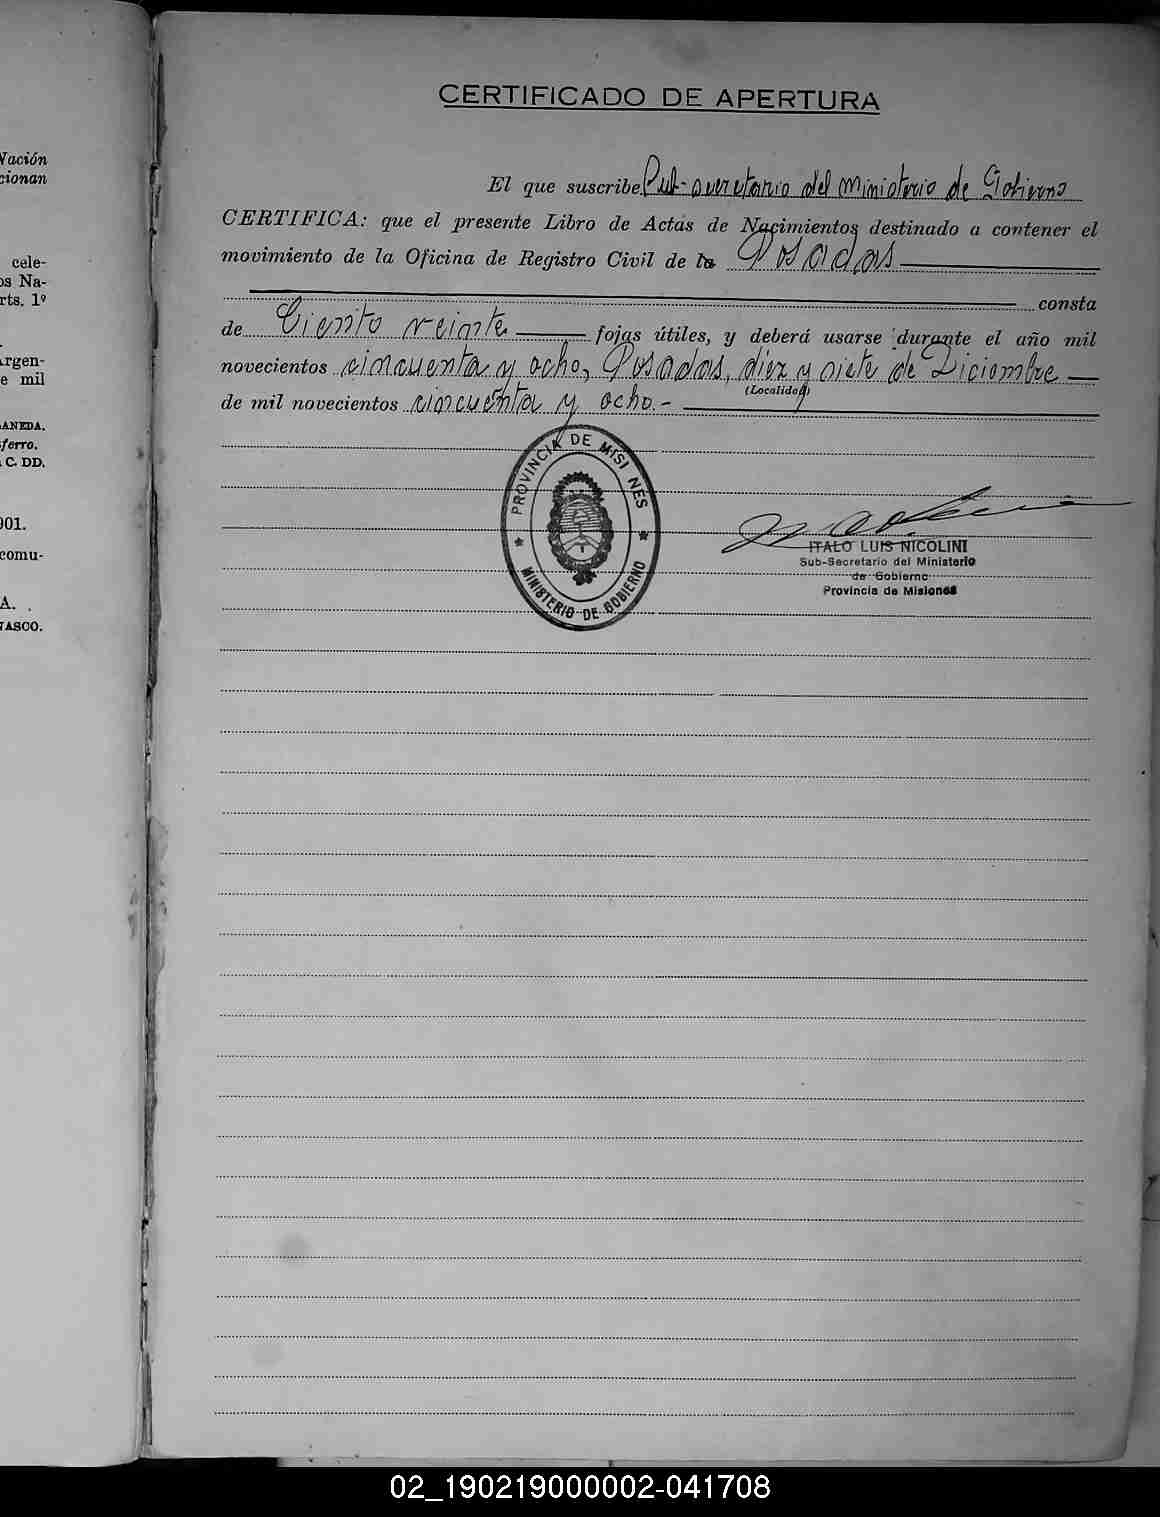 Nación
cionan
cele-
os Na-
rts. 1º
Argen-
e mil
ANEDA.
sferro.
C. DD.
901.
comu-
A. .
VASCO.
CERTIFICADO DE APERTURA
El que suscribe Sub-secretario del Ministerio de Gobierno
CERTIFICA: que el presente Libro de Actas de Nacimientos destinado a contener el
movimiento de la Oficina de Registro Civil de la Posadas
consta
de Ciento veinte fojas útiles, y deberá usarse durante el año mil
novecientos cincuenta y ocho, Posadas, diez y siete de Diciembre
(Localidad)
de mil novecientos cincuenta y ocho.-
PROVINCIA DE MISI NES
MINISTERIO DE GOBIERNO
ITALO LUIS NICOLINI
Sub-Secretario del Ministerio
de Gobierno
Provincia de Misiones
02_190219000002-041708